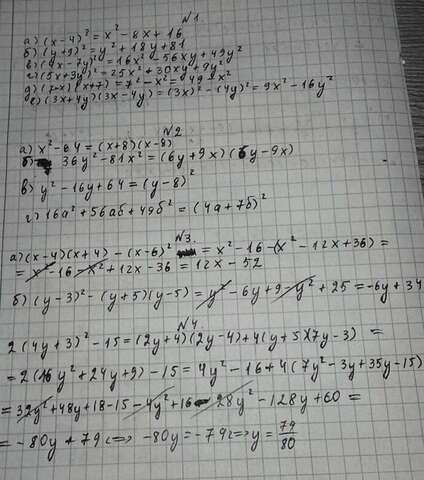 №1
а) (x-4)² = x² - 8x + 16
б) (y+9)² = y² + 18y + 81
в) (4x - 7y)² = 16x² - 56xy + 49y²
г) (5x+3y)² = 25x² + 30xy + 9y²
д) (7-x)(x+7) = 7² - x² = 49 - x²
е) (3x+4y)(3x-4y) = (3x)² - (4y)² = 9x² - 16y²
№2
а) x² - 64 = (x+8)(x-8)
б) 36y² - 81x² = (6y + 9x)(6y - 9x)
в) y² - 16y + 64 = (y-8)²
г) 16a² + 56aб + 49б² = (4a + 7б)²
№3.
а) (x-4)(x+4) - (x-6)² = x² - 16 - (x² - 12x + 36) =
= x² - 16 - x² + 12x - 36 = 12x - 52
б) (y-3)² - (y+5)(y-5) = y² - 6y + 9 - y² + 25 = -6y + 34
№4
2(4y+3)² - 15 = (2y+4)(2y-4) + 4(y+5)(7y-3) =
= 2(16y² + 24y + 9) - 15 = 4y² - 16 + 4(7y² - 3y + 35y - 15)
= 32y² + 48y + 18 - 15 - 4y² + 16 - 28y² - 128y + 60 =
= -80y + 79 <=> -80y = -79 <=> y = 79/80